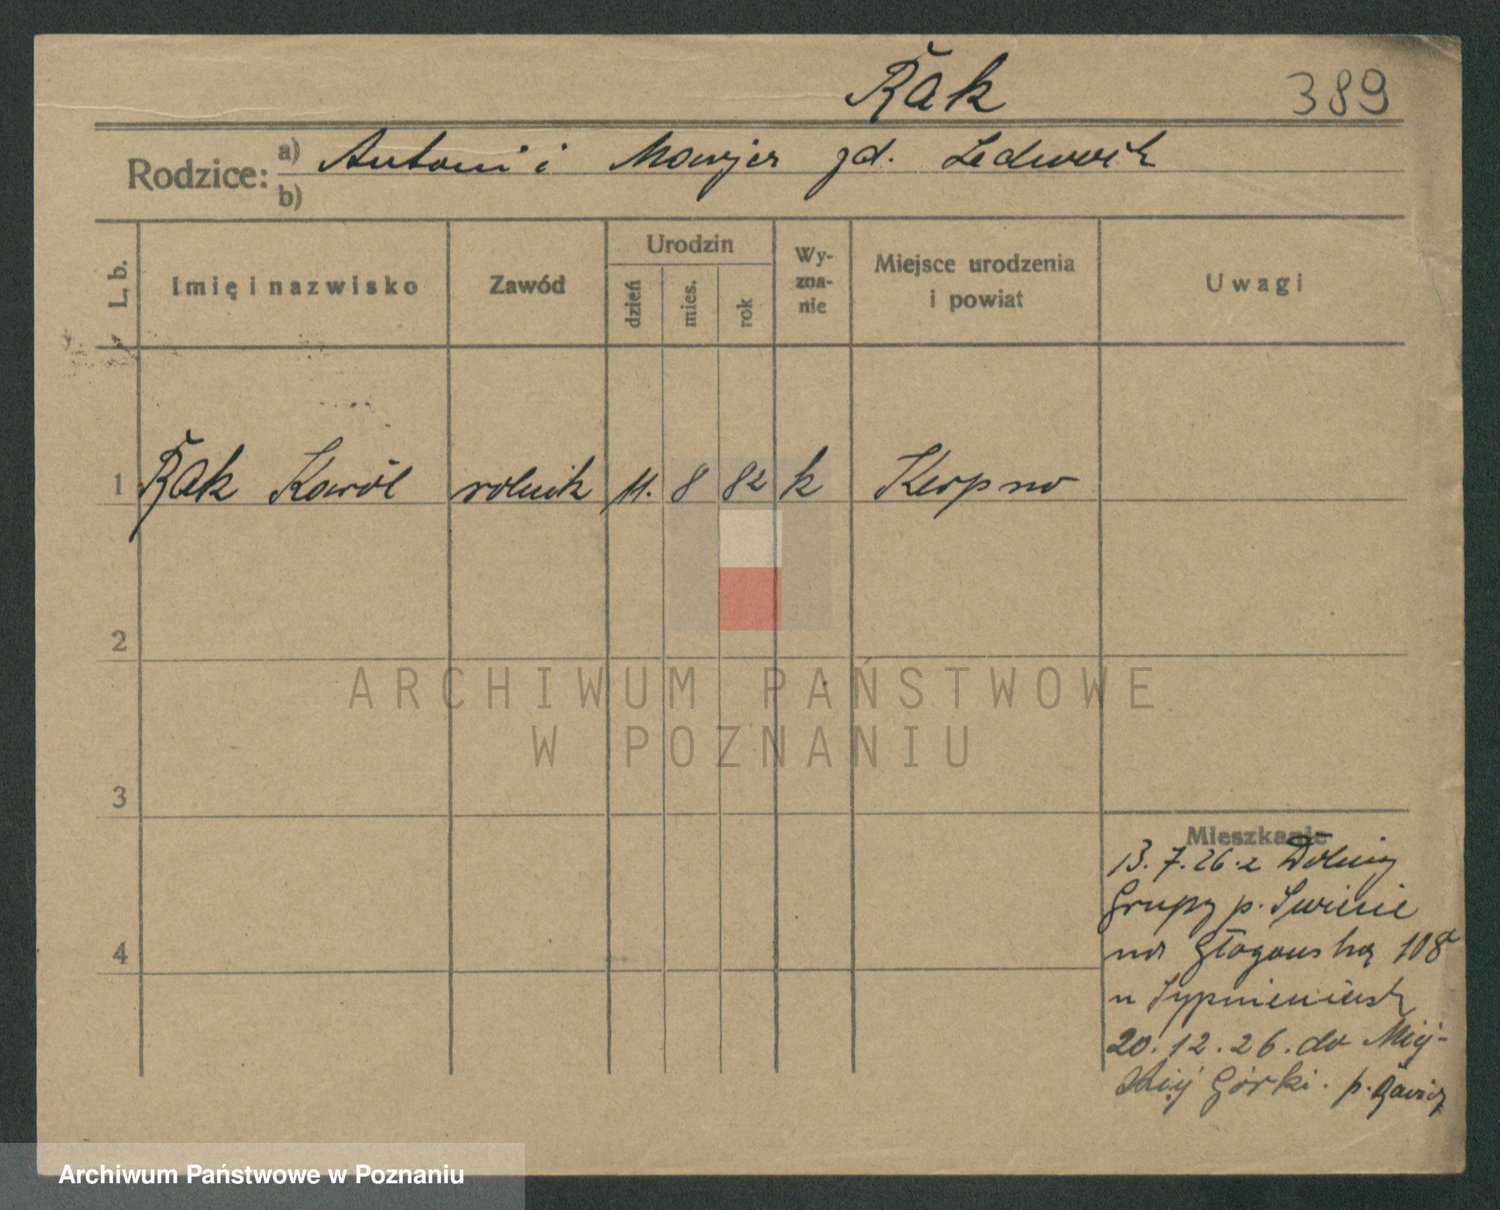 Rak 389
Rodzice: a) Antoni i zd.
b)
L. b. Imię i nazwisko Zawód Urodzin dzień mies. rok Wyznanie Miejsce urodzenia i powiat Uwagi
1 Rak Karól rolnik 11. 8 82 k Kerpno
2
3
4
Mieszkanie
13.7.26 z Dolnej
Grupy p. Świecie
na Głogowską 108
u
20.12.26. do Miej-
skiej Górki. p. Rawicz
ARCHIWUM PAŃSTWOWE
W POZNANIU
Archiwum Państwowe w Poznaniu